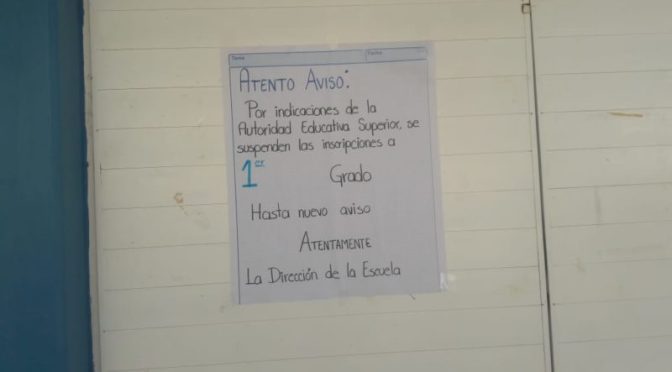 Tema
Fecha
ATENTO AVISO:
Por indicaciones de la
Autoridad Educativa Superior, se
suspenden las inscripciones a
1er Grado
Hasta nuevo aviso
ATENTAMENTE
La Dirección de la Escuela